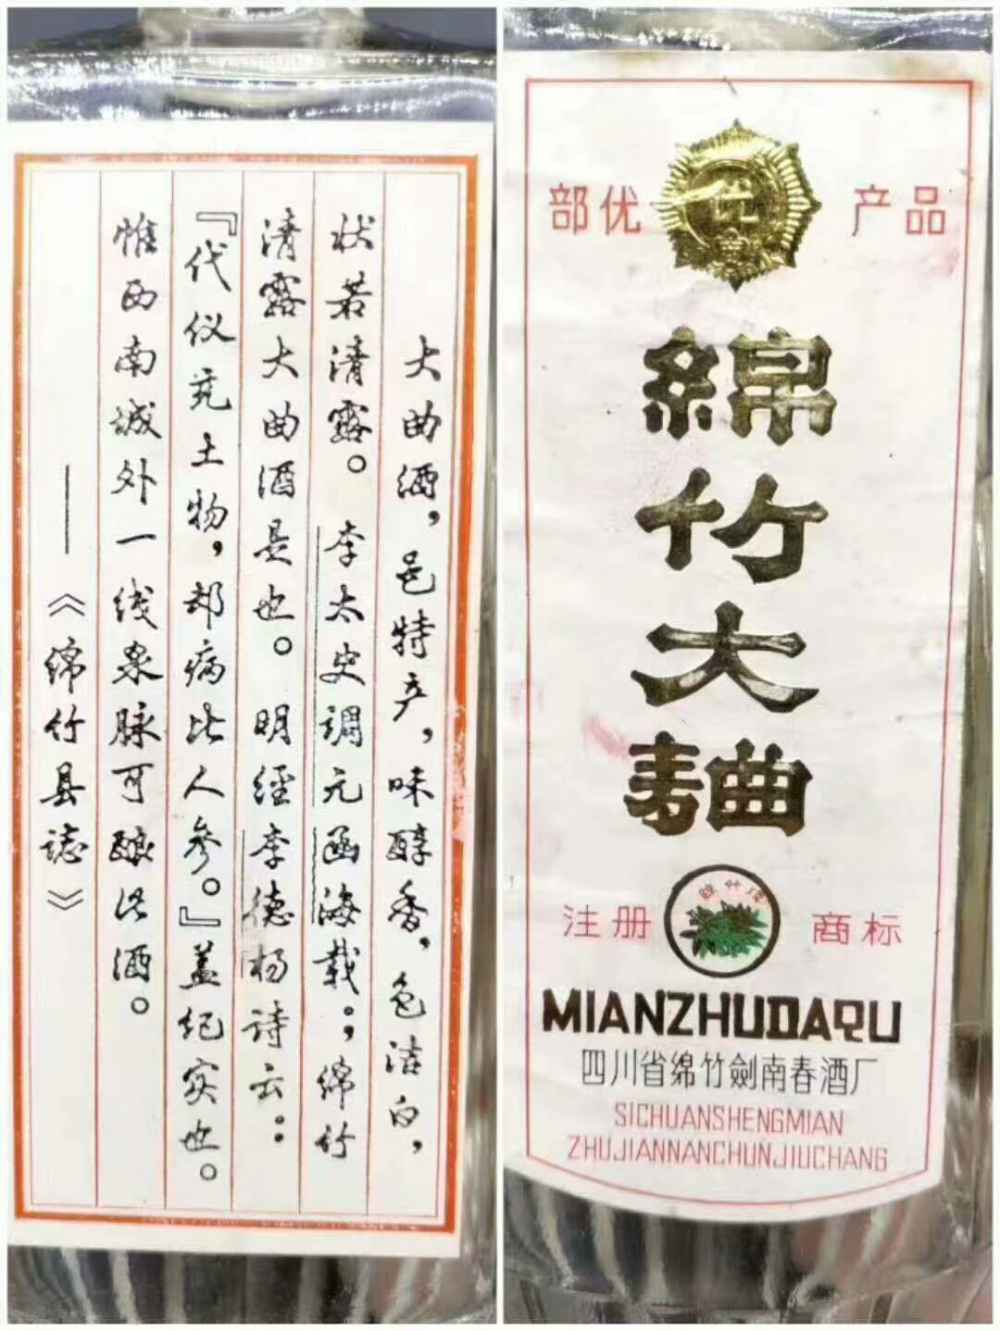 大曲酒，邑特产，味醇香，色洁白，
状若清露。李太史调元函海载：绵竹
清露大曲酒是也。明经李德杨诗云：
『代仪充土物，却病比人参。』盖纪实也。
惟西南城外一线泉脉可酿此酒。
——《绵竹县志》
部优 优 产品
綿竹大麯
注册 商标
MIANZHUDAQU
四川省绵竹剑南春酒厂
SICHUANSHENGMIAN
ZHUJIANNANCHUNJIUCHANG